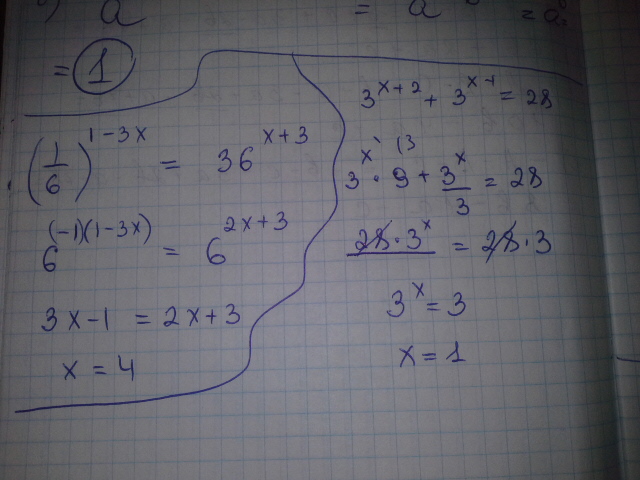 a = a = a
= 1
(1/6)^(1-3x) = 36^(x+3)
6^((-1)(1-3x)) = 6^(2x+3)
3x-1 = 2x+3
x = 4
3^(x+2) + 3^(x-1) = 28
3^x · 9 + 3^x/3 = 28
28·3^x = 28·3
3^x = 3
x = 1